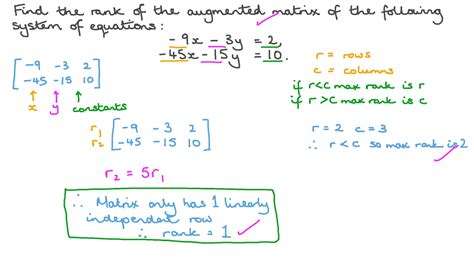 Find the rank of the augmented matrix of the following
system of equations:
-9x - 3y = 2,
-45x - 15y = 10.
[ -9 -3 2 ]
[ -45 -15 10 ]
↑ ↑ ↑
x y constants
r = rows
c = columns
if r<c max rank is r
if r>c max rank is c
r₁ [ -9 -3 2 ]
r₂ [ -45 -15 10 ]
r = 2 c = 3
∴ r < c so max rank is 2
r₂ = 5r₁
∴ Matrix only has 1 linearly
independent row
∴ rank = 1